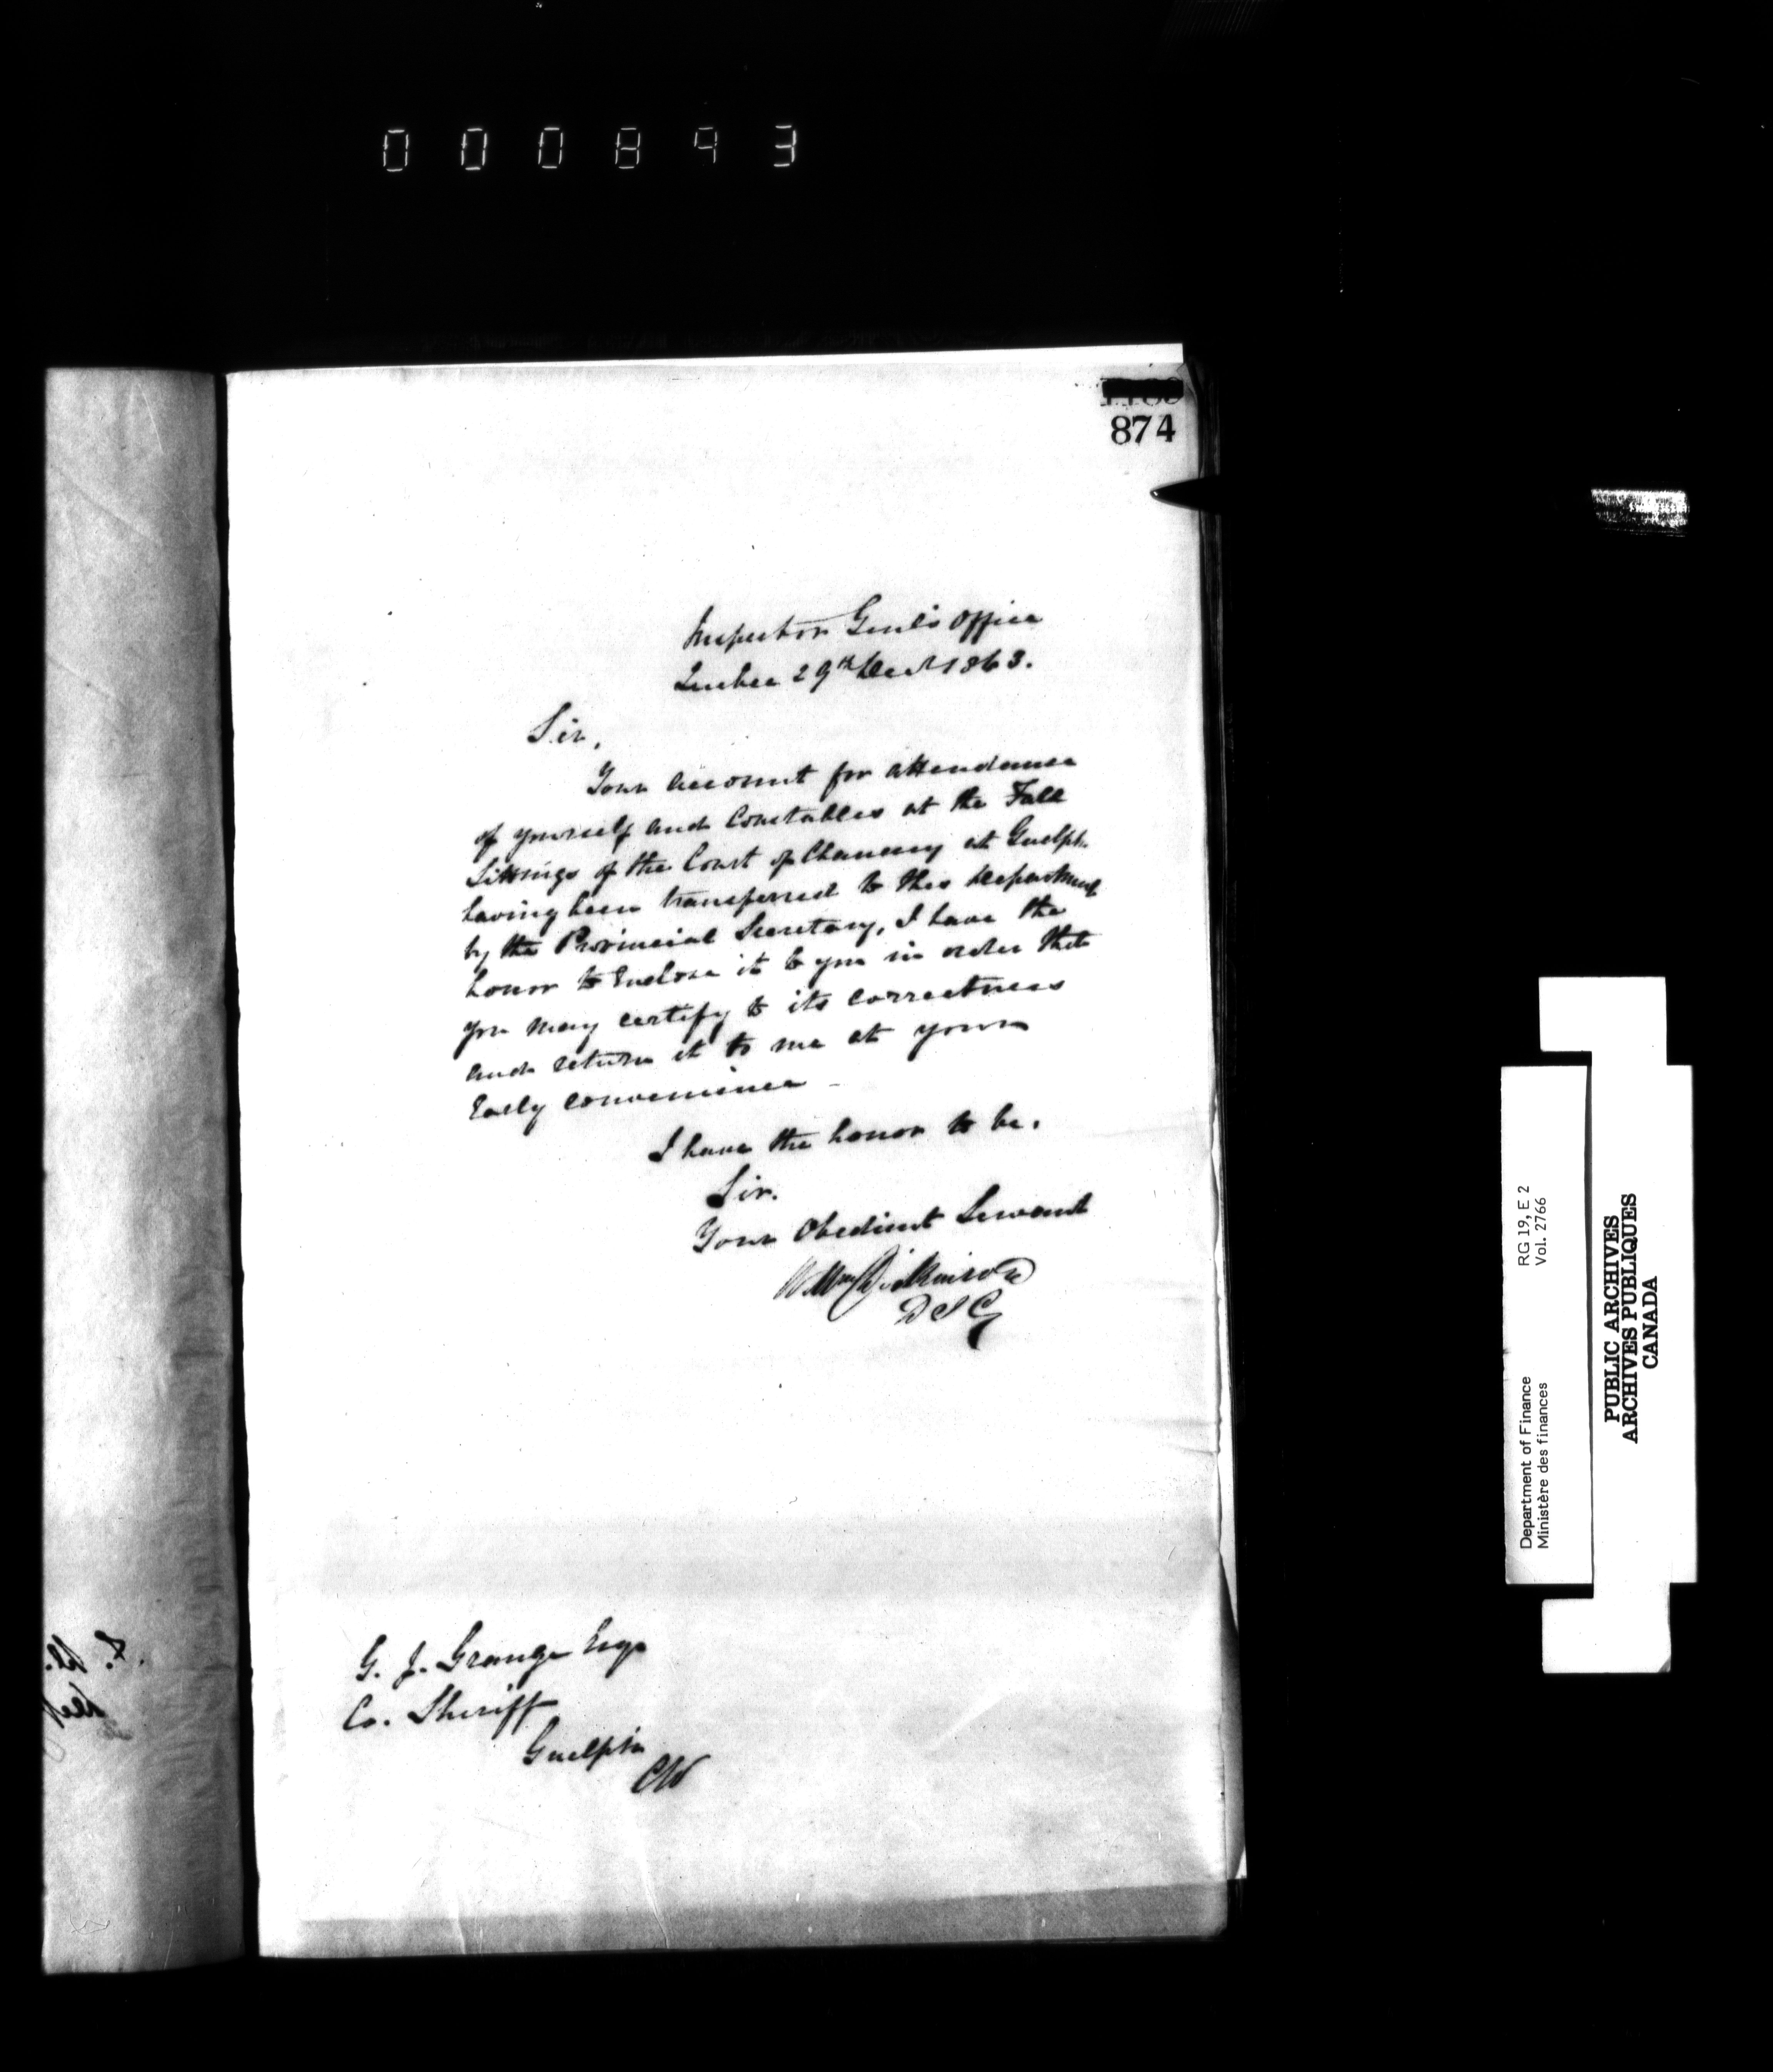 000893
874
Inspector Genl's Office
Quebec 29th Decr 1863.
Sir,
Your account for attendance
of yourself and Constables at the Fall
Sittings of the Court of Chancery at Guelph
having been transferred to this Department
by the Provincial Secretary, I have the
honor to Enclose it to you in order that
you may certify to its correctness
and return it to me at your
Early convenience –
I have the honor to be,
Sir.
Your Obedient Servant
Wm Dickinson
D I G
G. J. Grange Esqr
Co. Sheriff
Guelph
CW
Department of Finance RG 19, E 2
Ministère des finances Vol. 2766
PUBLIC ARCHIVES
ARCHIVES PUBLIQUES
CANADA